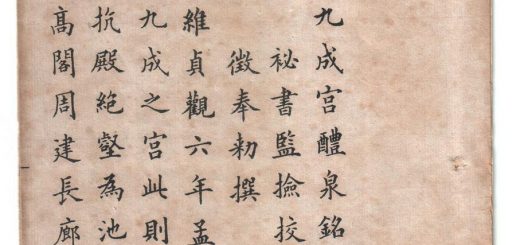 九成宮醴泉銘
祕書監撿挍
徵奉勑撰
維貞觀六年孟
九成之宮此則
抗殿絕壑為池
高閣周建長廊